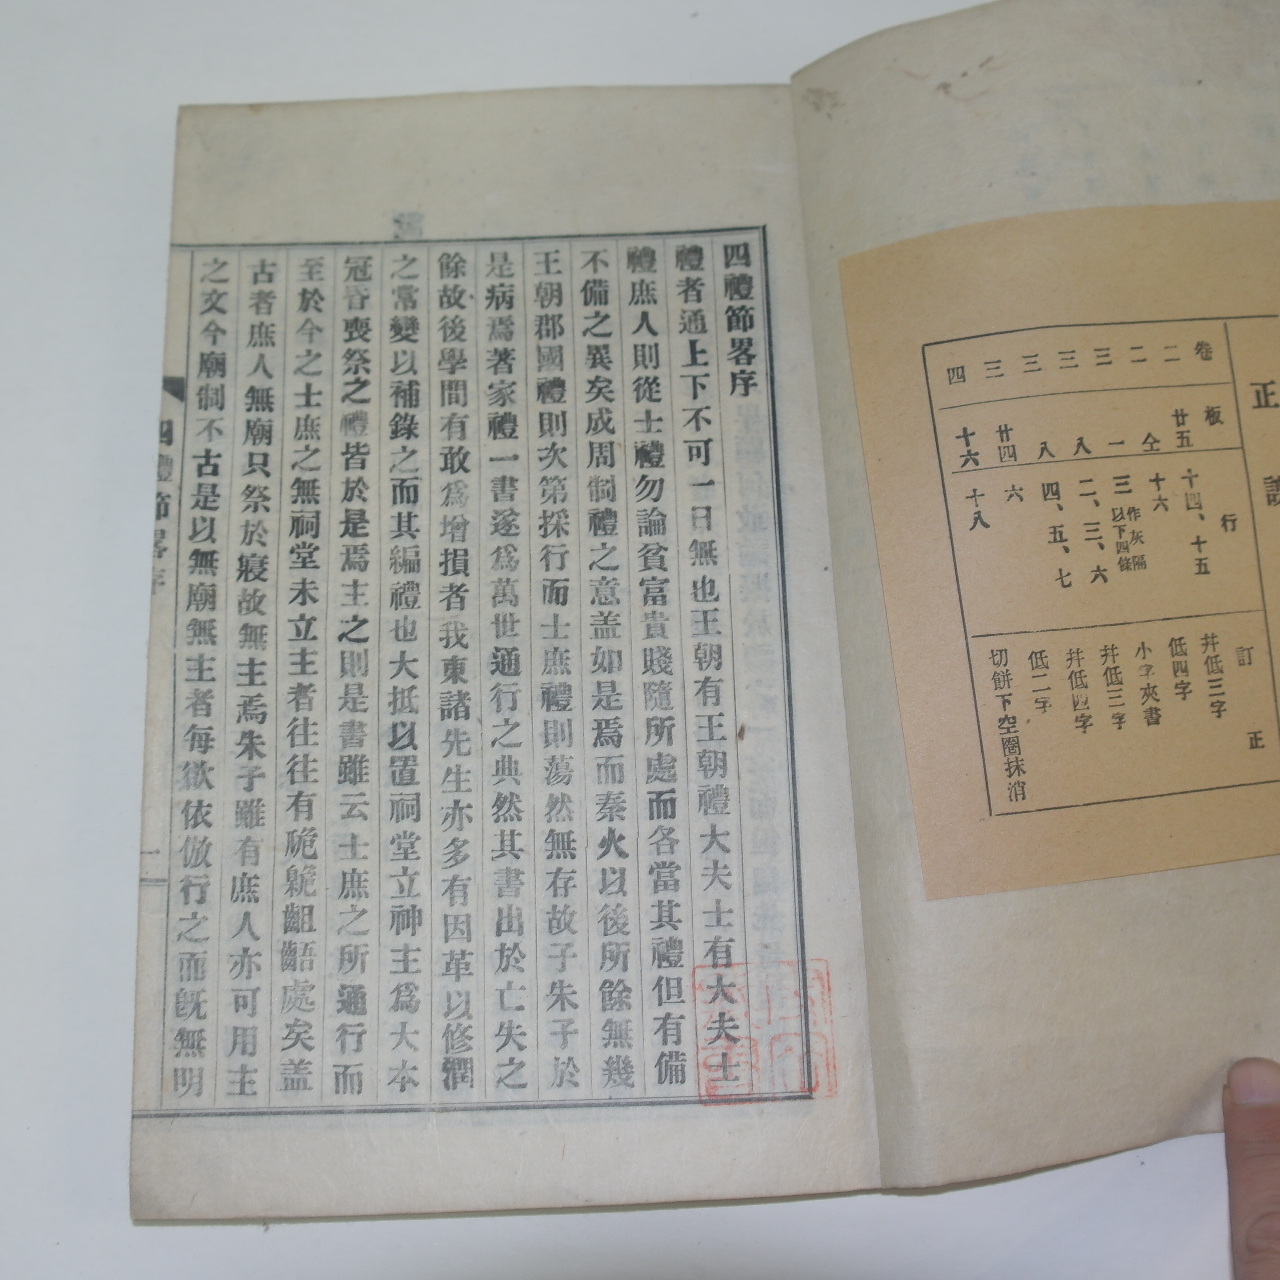 正誤
卷 板 行 訂正
二 廿五 十四、十五 幷低三字
二 仝 十六 低四字
三 一 三 以下四條 作灰隔 小字夾書
三 八 二、三、六 幷低三字
三 八 四、五、七 幷低四字
三 廿四 六 低二字
四 十六 十八 切餠下空圈抹消
四禮節畧序
禮者通上下不可一日無也王朝有王朝禮大夫士有大夫士
禮庶人則從士禮勿論貧富貴賤隨所處而各當其禮但有備
不備之異矣成周制禮之意盖如是焉而秦火以後所餘無幾
王朝郡國禮則次第採行而士庶禮則蕩然無存故子朱子於
是病焉著家禮一書遂爲萬世通行之典然其書出於亡失之
餘故後學間有敢爲增損者我東諸先生亦多有因革以修潤
之常變以補錄之而其編禮也大抵以置祠堂立神主爲大本
冠昏喪祭之禮皆於是焉主之則是書雖云士庶之所通行而
至於今之士庶之無祠堂未立主者往往有臲卼齟齬處矣盖
古者庶人無廟只祭於寢故無主焉朱子雖有庶人亦可用主
之文今廟制不古是以無廟無主者每欲依倣行之而旣無明
四禮節畧序
一